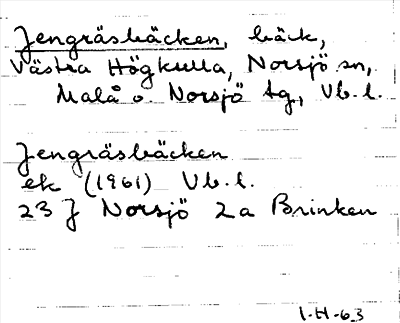 Jengräsbäcken, bäck,
Västra Högkulla, Norsjö sn,
Malå o. Norsjö tg, Vb. l.
Jengräsbäcken
ek (1961) Vb. l.
23 J Norsjö 2a Brinken
1-H-63